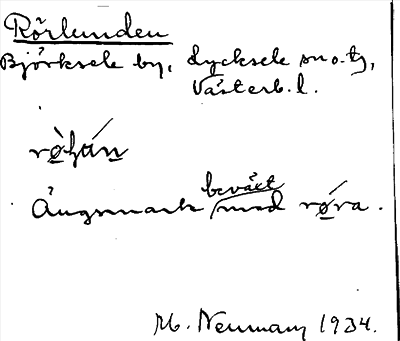 Rörlunden
Björksele by, Lycksele sn o. tg,
Västerb. l.
Ängsmark beväxt med röra.
M. Neumann 1934.